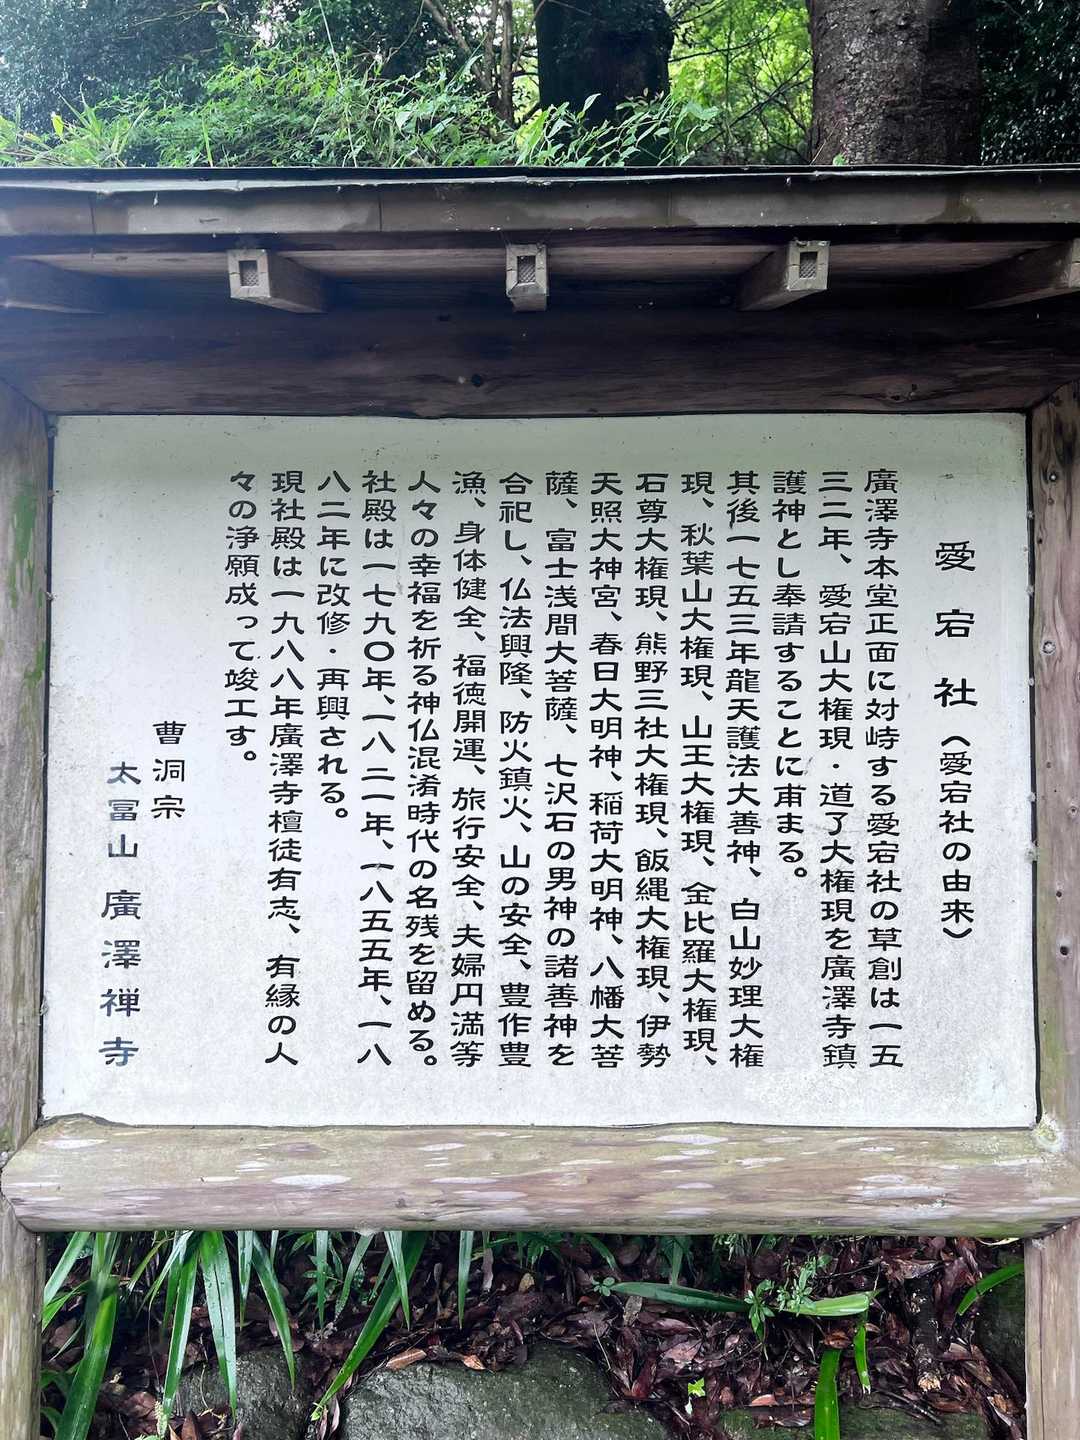 愛宕社（愛宕社の由来）
廣澤寺本堂正面に対峙する愛宕社の草創は一五
三二年、愛宕山大権現・道了大権現を廣澤寺鎮
護神とし奉請することに甫まる。
其後一七五三年龍天護法大善神、白山妙理大権
現、秋葉山大権現、山王大権現、金比羅大権現、
石尊大権現、熊野三社大権現、飯縄大権現、伊勢
天照大神宮、春日大明神、稲荷大明神、八幡大菩
薩、富士浅間大菩薩、七沢石の男神の諸善神を
合祀し、仏法興隆、防火鎮火、山の安全、豊作豊
漁、身体健全、福徳開運、旅行安全、夫婦円満等
人々の幸福を祈る神仏混淆時代の名残を留める。
社殿は一七九〇年、一八二一年、一八五五年、一八
八二年に改修・再興される。
現社殿は一九八八年廣澤寺檀徒有志、有縁の人
々の浄願成って竣工す。
曹洞宗
太冨山廣澤禅寺